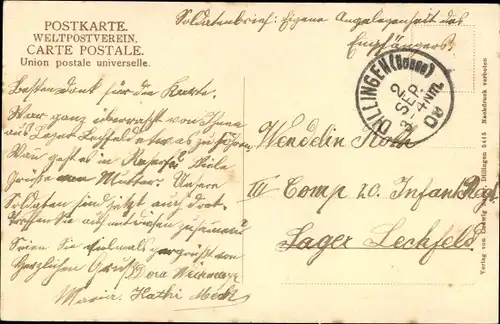 POSTKARTE.
WELTPOSTVEREIN.
CARTE POSTALE.
Union postale universelle.
Soldatenbrief: Eigene Angelegenheit des
Empfängers
DILLINGEN (Donau)
2 SEP. 08
Bestendank für die Karte.
War ganz überrascht von Ihnen
aus Lager Lechfeld etwas zu hören.
Wie geht es in Viele
Grüsse von Mutter. Unsere
Soldaten sind jetzt auch dort.
treffen Sie auch mit zusammen
Seien Sie vielmals gegrüßt von
Herzlichen Gruß Dora
Maria. Kathi
Wendelin Roth
III Comp 20. Infant. Regt.
Lager Lechfeld
Verlag von Ludwig Dillingen 5415 Nachdruck verboten